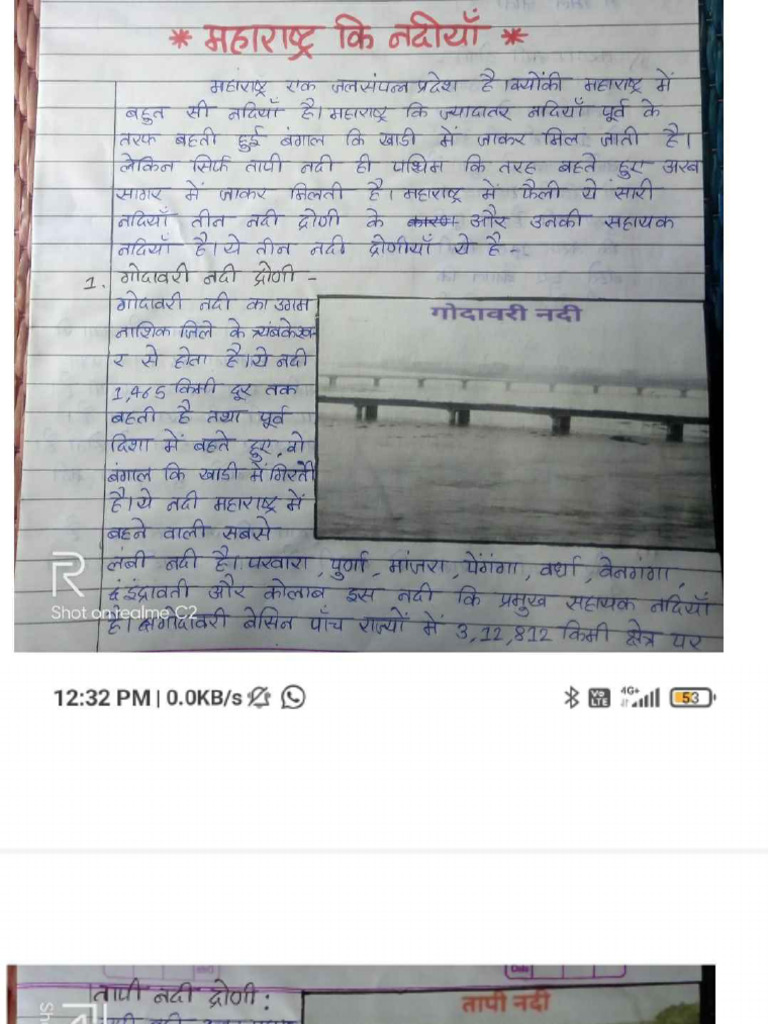 * महाराष्ट्र कि नदीयाँ *
महाराष्ट्र एक जलसंपन्न प्रदेश है। क्योंकी महाराष्ट्र में
बहुत सी नदियाँ है। महाराष्ट्र कि ज्यादातर नदियाँ पूर्व के
तरफ बहती हुई बंगाल कि खाडी में जाकर मिल जाती है।
लेकिन सिर्फ तापी नदी ही पश्चिम कि तरह बहते हुए अरब
सागर में जाकर मिलती है। महाराष्ट्र में फैली ये सारी
नदियाँ तीन नदी द्रोणी के कारण और उनकी सहायक
नदियाँ है। ये तीन नदी द्रोणीयाँ ये है -
1. गोदावरी नदी द्रोणी -
गोदावरी नदी का उगम
नाशिक जिले के त्र्यंबकेश्व
र से होता है। ये नदी
1,465 किमी दूर तक
बहती है तथा पूर्व
दिशा में बहते हुए, वो
बंगाल कि खाडी में गिरती
है। ये नदी महाराष्ट्र में
बहने वाली सबसे
गोदावरी नदी
लंबी नदी है। परवारा, पुर्णा, मांजरा, पेंगंगा, वर्धा, वेनगंगा,
इंद्रावती और कोलाब इस नदी कि प्रमुख सहायक नदियाँ
है। गोदावरी बेसिन पाँच राज्यों में 3,12,812 किमी क्षेत्र पर
R
Shot on realme C2
12:32 PM | 0.0KB/s
Vo LTE 4G+ 53
Date
तापी नदी द्रोणी :
तापी नदी